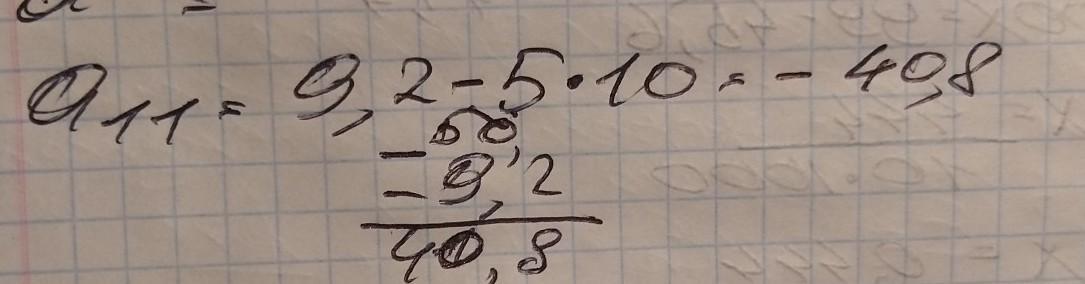 a₁₁ = 9,2 - 5 · 10 = - 40,8
- 50,
- 9,2
40,8